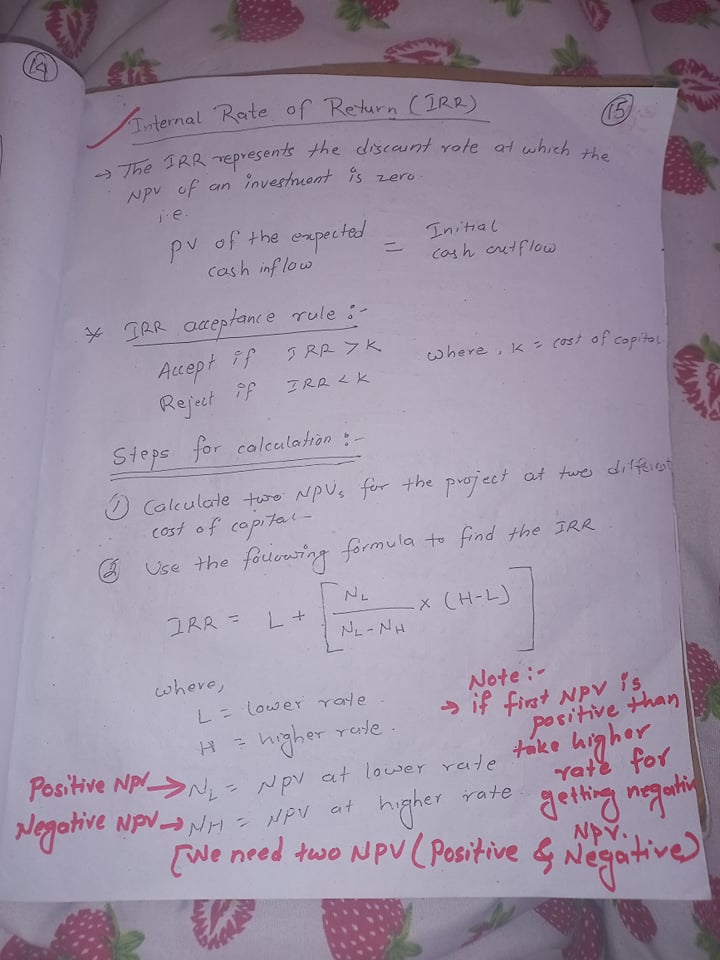 14
15
Internal Rate of Return (IRR)
→ The IRR represents the discount rate at which the
NPV of an investment is zero.
i.e.
PV of the expected
cash inflow
=
Initial
cash outflow
* IRR acceptance rule :-
Accept if IRR > K
where, K = cost of capital
Reject if IRR < K
Steps for calculation :-
① Calculate two NPVs for the project at two different
cost of capital
② Use the following formula to find the IRR
IRR = L + [ NL / NL - NH × (H-L) ]
where,
L = lower rate.
H = higher rate.
Positive NPV → NL = NPV at lower rate
Negative NPV → NH = NPV at higher rate.
Note :-
→ if first NPV is
positive than
take higher
rate for
getting negative
NPV.
[We need two NPV (Positive & Negative)